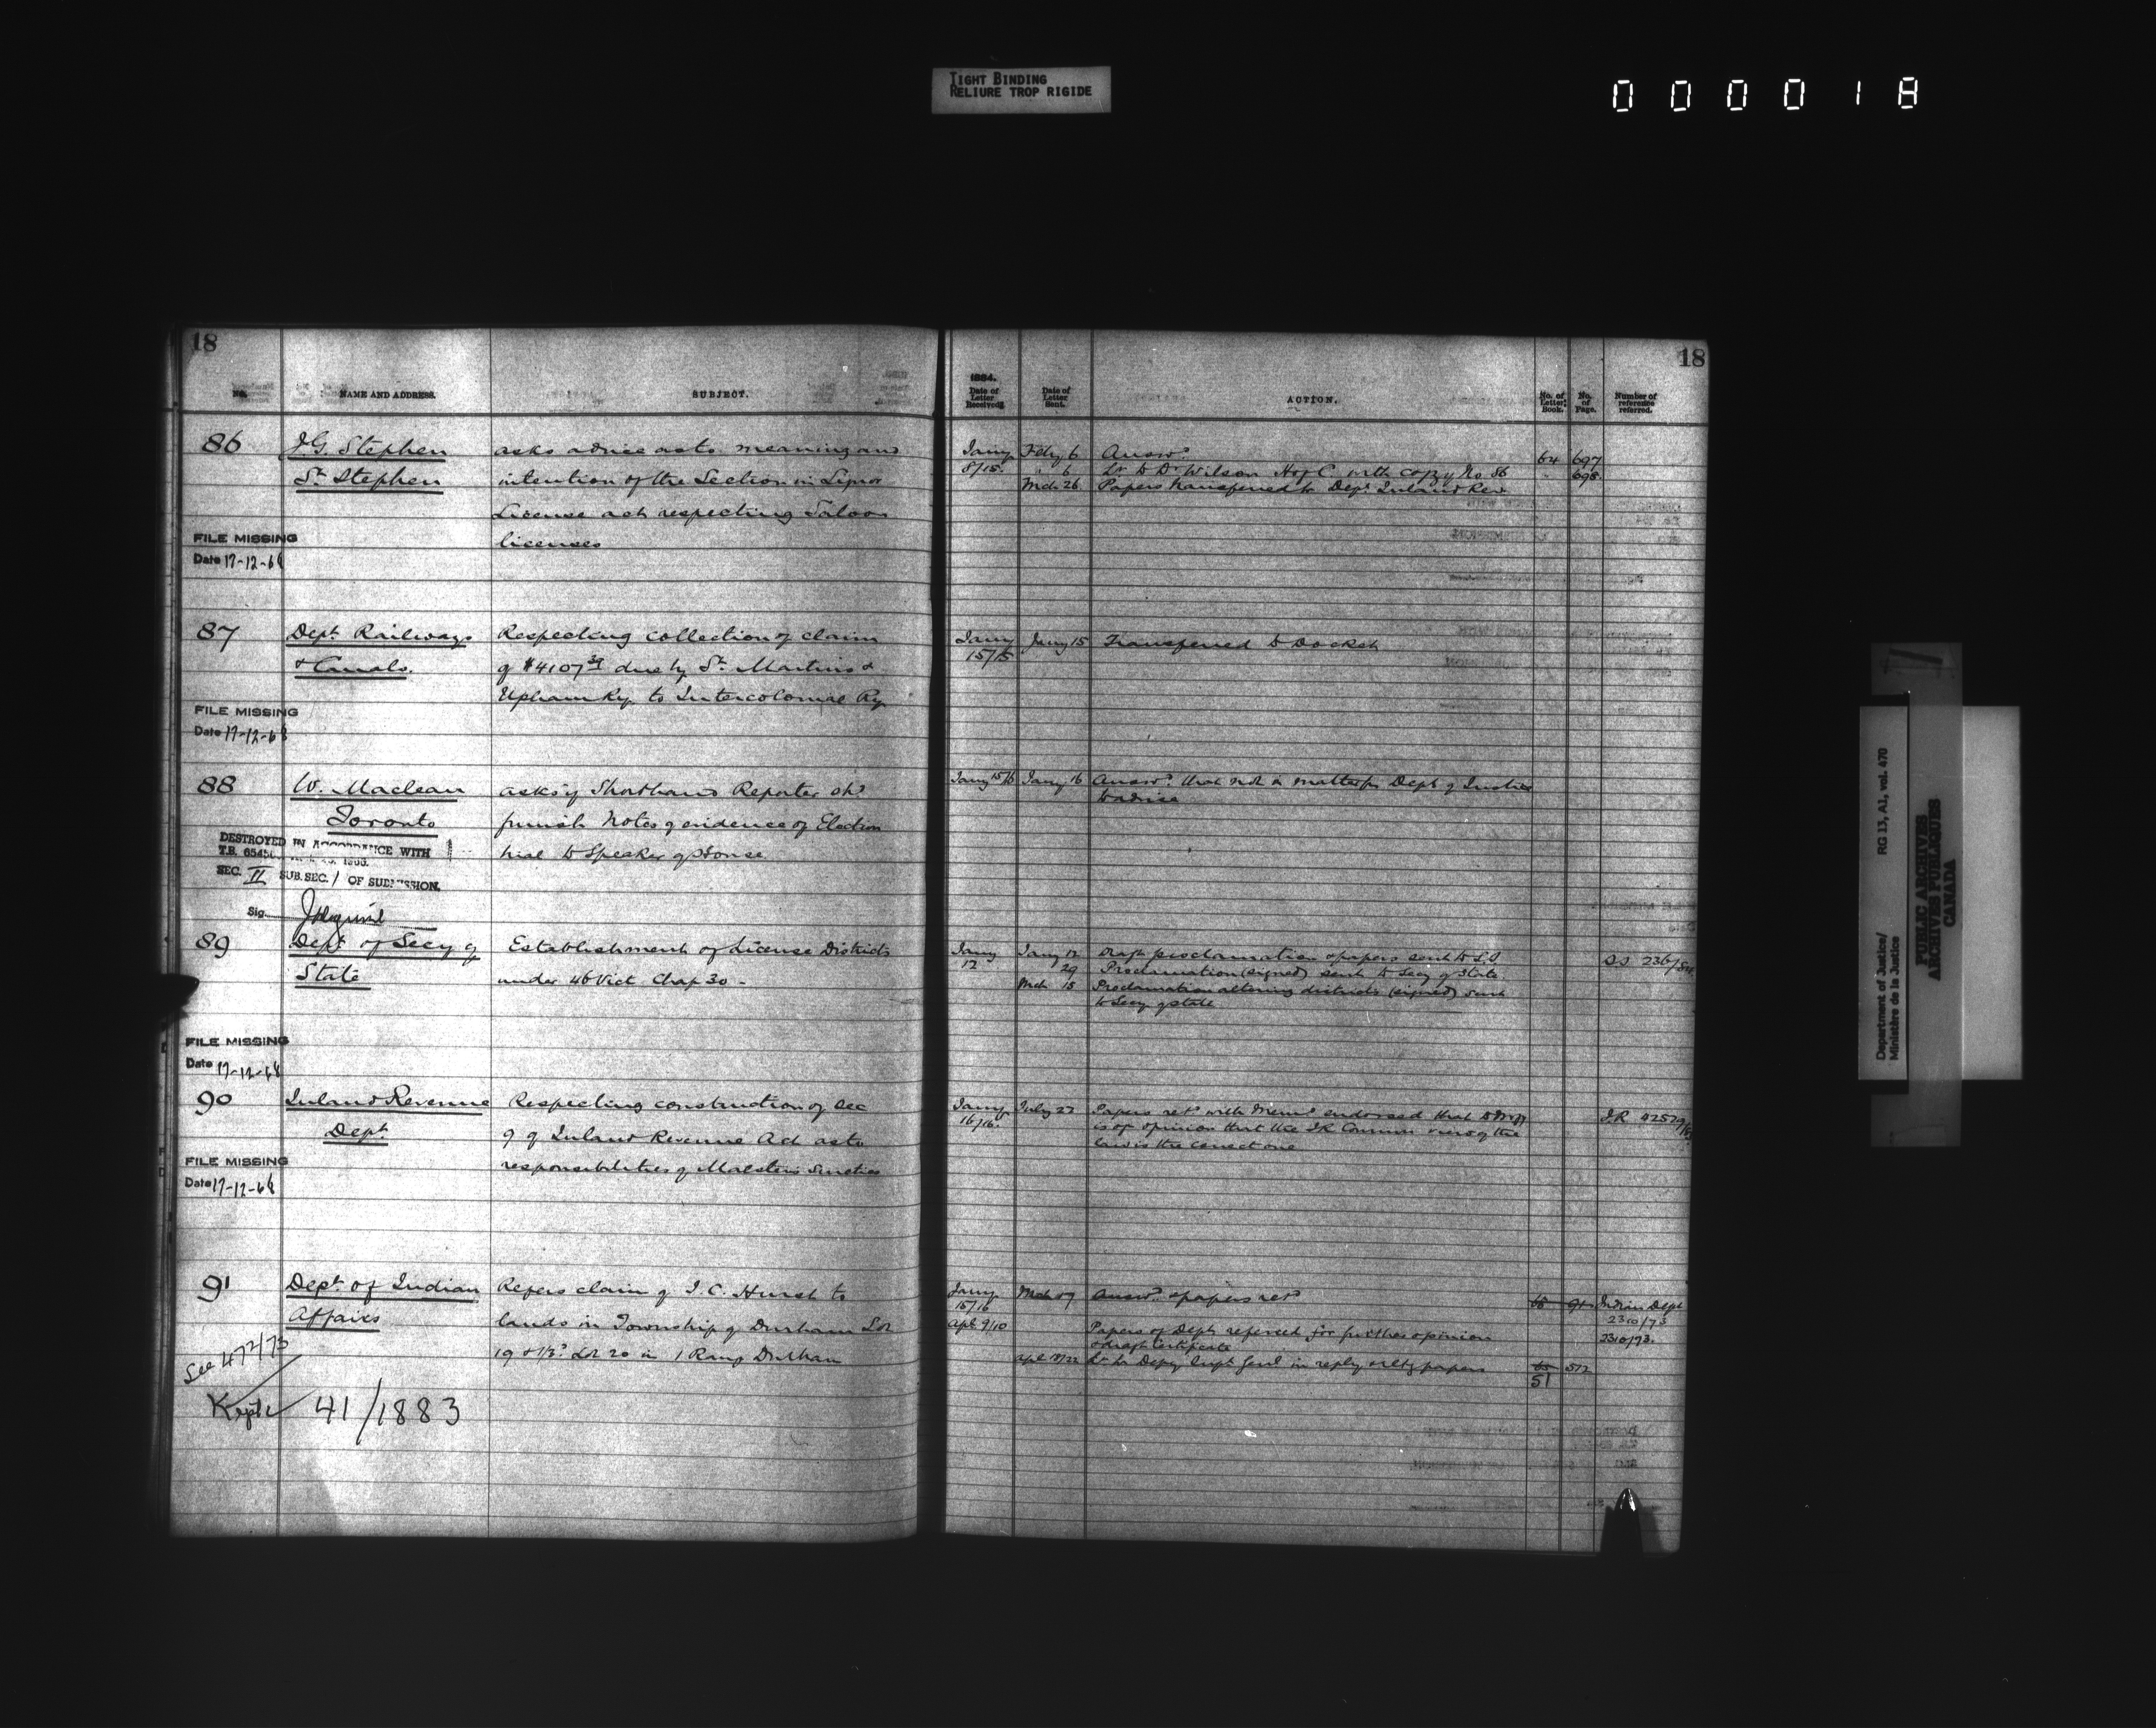 TIGHT BINDING
RELIURE TROP RIGIDE
000018
18
18
No.
NAME AND ADDRESS.
SUBJECT.
1884.
Date of Letter Received.
Date of Letter Sent.
ACTION.
No. of Letter Book.
No. of Page.
Number of reference referred.
86
J.G. Stephen
St. Stephen
asks advice as to meaning and
intention of the Section in Liquor
License act respecting Saloon
licenses
FILE MISSING
Date 17-12-68
Jany 8/15
Feby 6 Answd. 64 697
" 6 Lr to Dr Wilson with copy of No 86 " 698
Mch 26 Papers transferred to Dept. Inland Rev
87
Dept. Railways
& Canals.
Respecting collection of claim
of $4107 due by St. Martins &
Upham Ry. to Intercolonial Ry.
FILE MISSING
Date 17-12-68
Jany 15/15
Jany 15 Transferred to Docket
88
W. Maclean
Toronto
asks if Shorthand Reporter shd
furnish notes of evidence of Election
trial to Speaker of House
DESTROYED IN ACCORDANCE WITH
T.B.
SEC. II SUB. SEC. 1 OF SUBMISSION.
Sig.
Jany 15/16
Jany 16 Answd. that not a matter for Dept of Justice
to advise
89
Dept of Secy of
State
Establishment of License Districts
under 46 Vict Chap 30 -
FILE MISSING
Date 17-12-68
Jany 12
Jany 12 Draft proclamation & papers sent to S.S. S.S. 236/84
29 Proclamation (signed) sent to Secy of State
Mch 15 Proclamation altering districts (signed) sent
to Secy of State
90
Inland Revenue
Dept
Respecting construction of Sec
9 of Inland Revenue Act as to
responsibilities of Maltsters Sureties
FILE MISSING
Date 17-12-68
Jany 16/16.
July 22 Papers retd with Memo endorsed that
is of opinion that the I.R. Commr view of the
law is the correct one
I.R. 42529
91
Dept. of Indian
Affairs
Refers claim of J.C. Hurst to
lands in Township of Durham Lot
19 & 1/3d Lot 20 in 1 Range Durham
See 472/73
Kept 41/1883
Jany 15/16
Answd. & papers retd
Indian Dept
2310/73
Apl 9/10
Papers of Dept. referred for further opinion
& draft certificate
2310/73.
Apl 18/22 Lr to Depy Supt Genl in reply & retg papers 65 512
51
Department of Justice/
Ministère de la Justice
RG 13, A1, vol. 470
PUBLIC ARCHIVES
ARCHIVES PUBLIQUES
CANADA